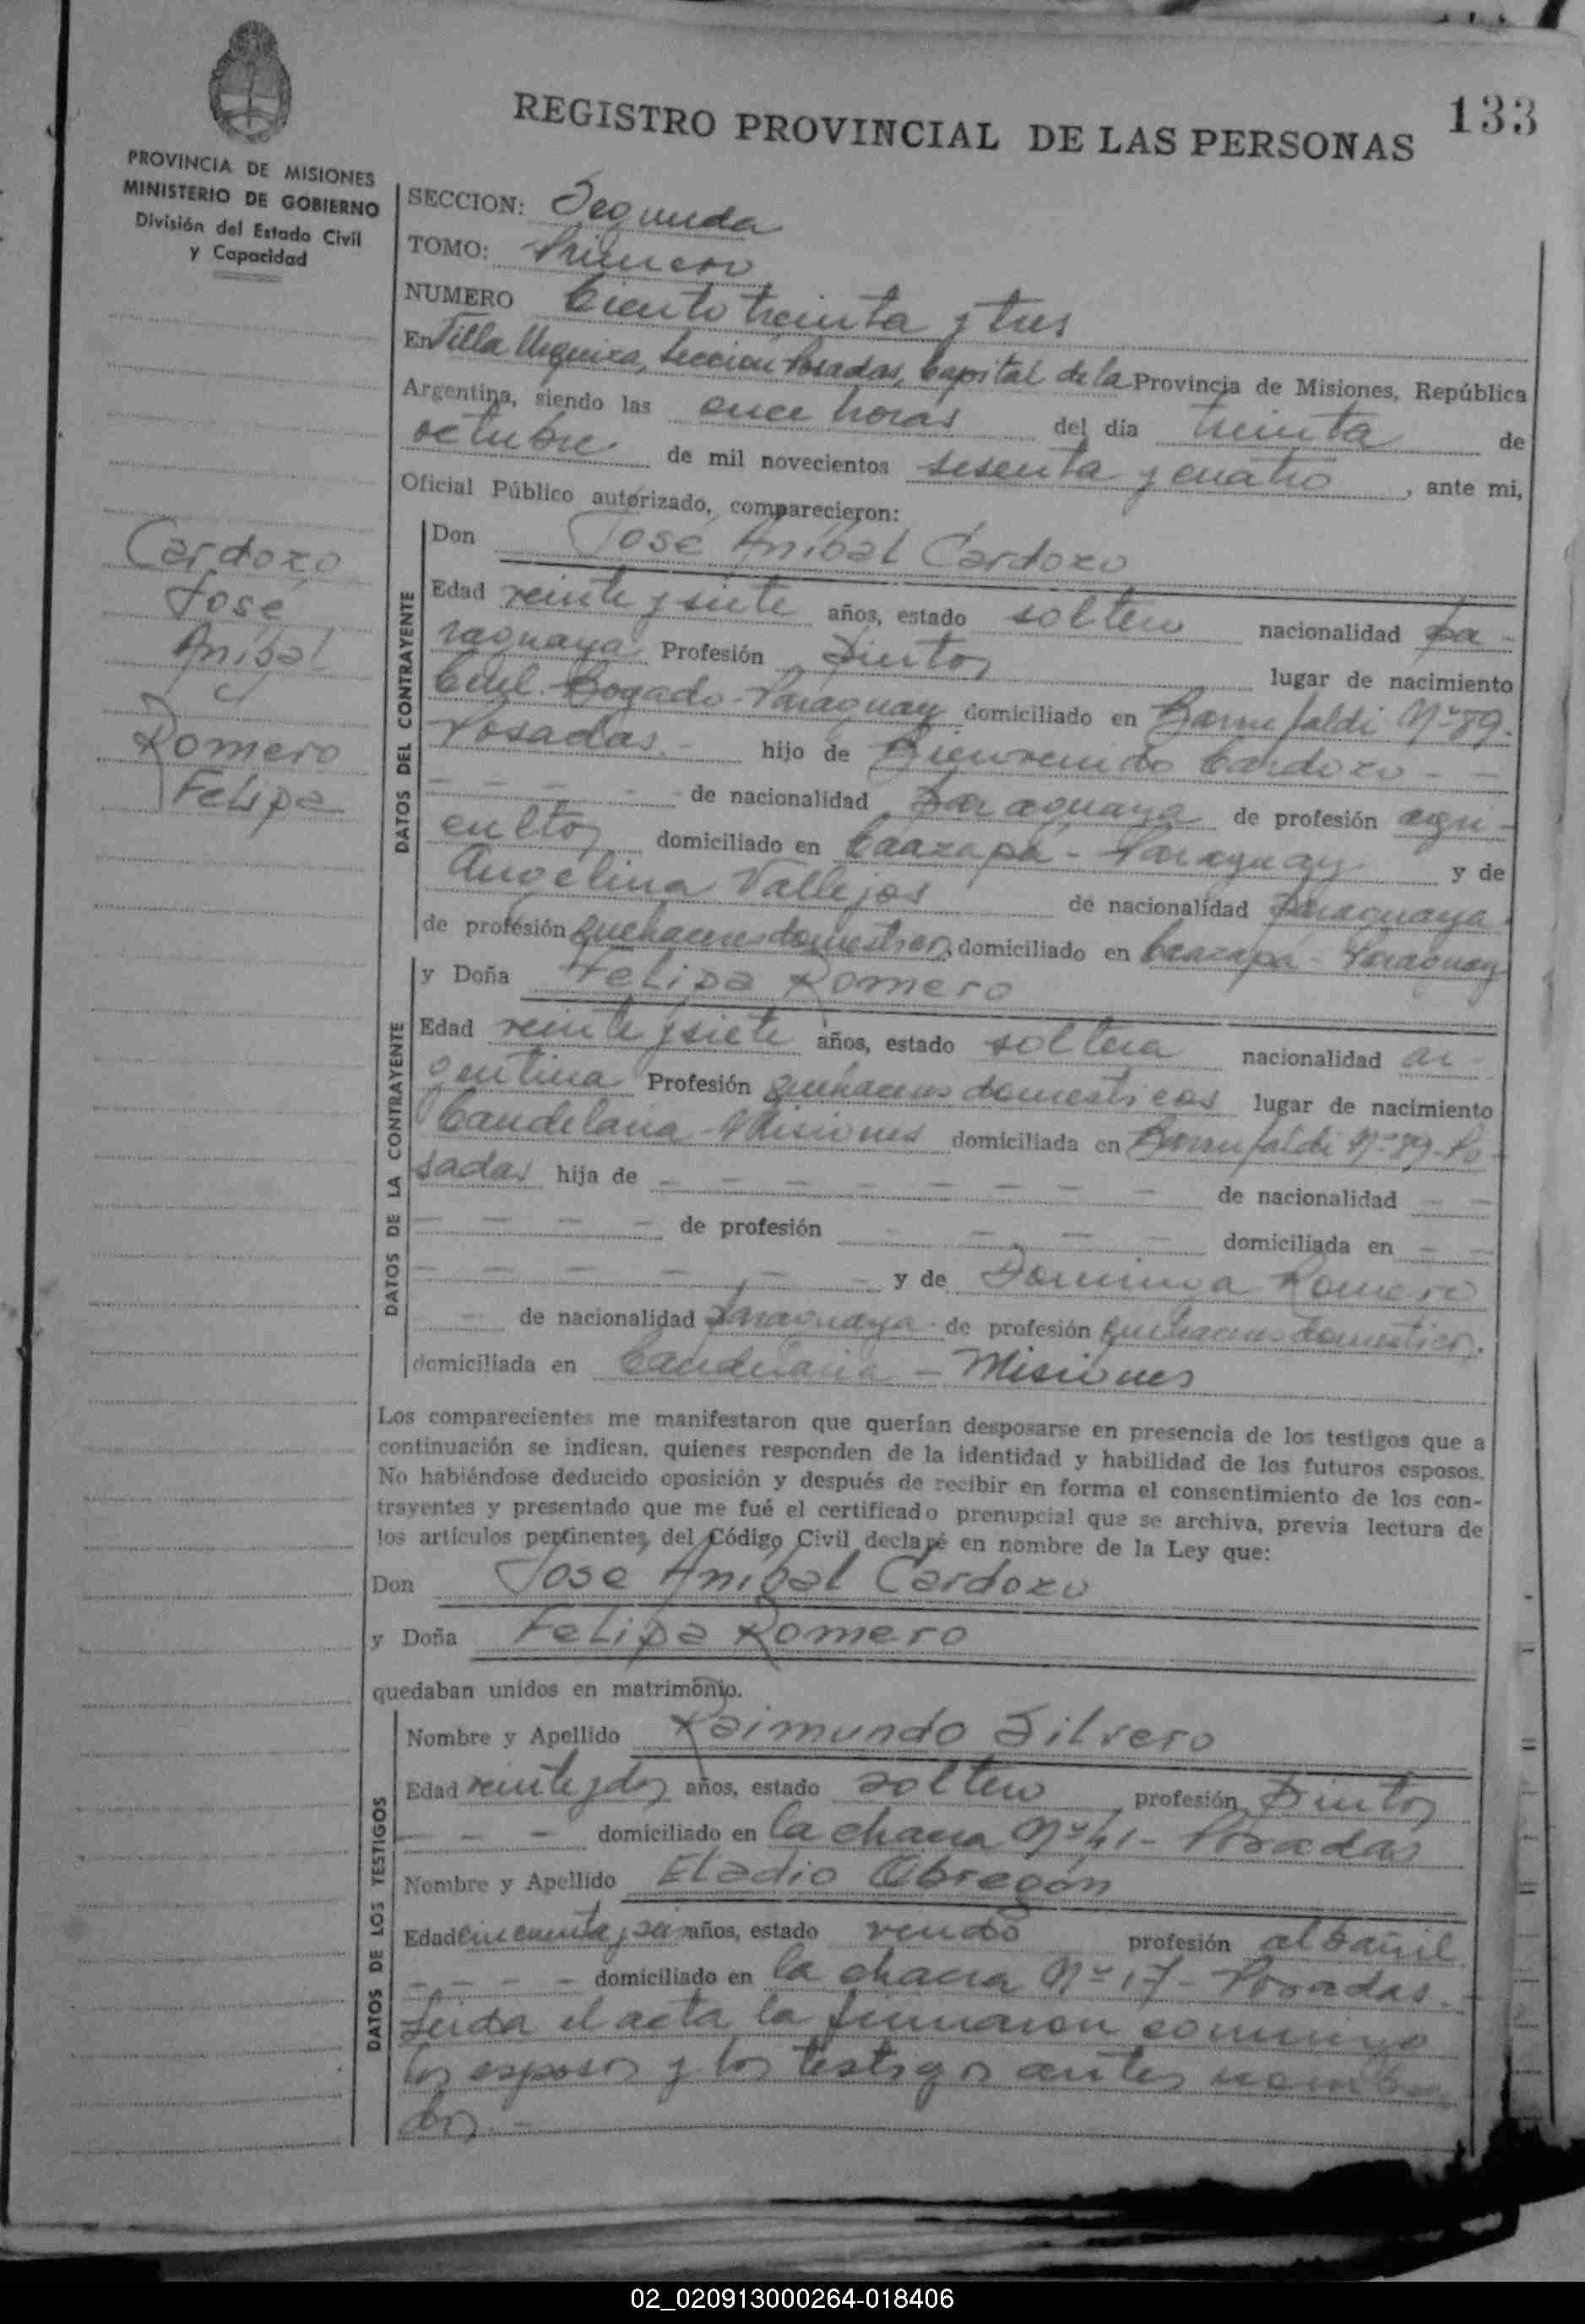 REGISTRO PROVINCIAL DE LAS PERSONAS 133
PROVINCIA DE MISIONES
MINISTERIO DE GOBIERNO
División del Estado Civil
y Capacidad
Cardozo
José
Aníbal
y
Romero
Felipa
SECCION: Segunda
TOMO: Primero
NUMERO Ciento treinta y tres
En Villa Urquiza, Sección Posadas, Capital de la Provincia de Misiones, República
Argentina, siendo las once horas del día treinta de
octubre de mil novecientos sesenta y cuatro, ante mi,
Oficial Público autorizado, comparecieron:
DATOS DEL CONTRAYENTE
Don José Aníbal Cardozo
Edad veinte y siete años, estado soltero nacionalidad pa-
raguaya Profesión Pintor lugar de nacimiento
Cnel. Bogado-Paraguay domiciliado en Barrufaldi Nº 89.
Posadas.- hijo de Bienvenido Cardozo - -
- - - - - de nacionalidad paraguaya de profesión agri-
cultor domiciliado en Caazapá - Paraguay y de
Angelina Vallejos de nacionalidad paraguaya
de profesión quehaceres domésticos, domiciliado en Caazapá - Paraguay
DATOS DE LA CONTRAYENTE
y Doña Felipa Romero
Edad veinte y siete años, estado soltera nacionalidad ar-
gentina Profesión quehaceres domésticos lugar de nacimiento
Candelaria-Misiones domiciliada en Barrufaldi Nº 89-Po-
sadas hija de - - - - - - - - de nacionalidad - -
- - - - de profesión - - - - - domiciliada en - -
- - - - - - y de Dominga Romero
- de nacionalidad paraguaya de profesión quehaceres domésticos.
domiciliada en Candelaria - Misiones
Los comparecientes me manifestaron que querían desposarse en presencia de los testigos que a
continuación se indican, quienes responden de la identidad y habilidad de los futuros esposos.
No habiéndose deducido oposición y después de recibir en forma el consentimiento de los con-
trayentes y presentado que me fué el certificado prenupcial que se archiva, previa lectura de
los artículos pertinentes, del Código Civil declaré en nombre de la Ley que:
Don José Aníbal Cardozo
y Doña Felipa Romero
quedaban unidos en matrimonio.
DATOS DE LOS TESTIGOS
Nombre y Apellido Raimundo Silvero
Edad veinte y dos años, estado soltero profesión Pintor
- - - domiciliado en la chacra Nº 41 - Posadas
Nombre y Apellido Eladio Obregón
Edad cincuenta y seis años, estado viudo profesión albañil
- - - - domiciliado en la chacra Nº 17 - Posadas.-
Leida el acta la firmaron conmigo
los esposos y los testigos antes nombra
dos.-
02_020913000264-018406